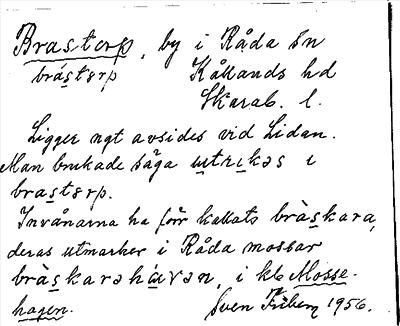 Brastorp, by i Råda sn
bràstɘrp Kållands hd
Skarab. l.
Ligger ngt avsides vid Lidan.
Man brukade säga utrikəs i
brastɘrp.
Invånarna ha förr kallats bràskara,
deras utmarker i Råda mossar
bràskarəhávən, i kb Mosse-
hagen. Sven Friberg 1956.